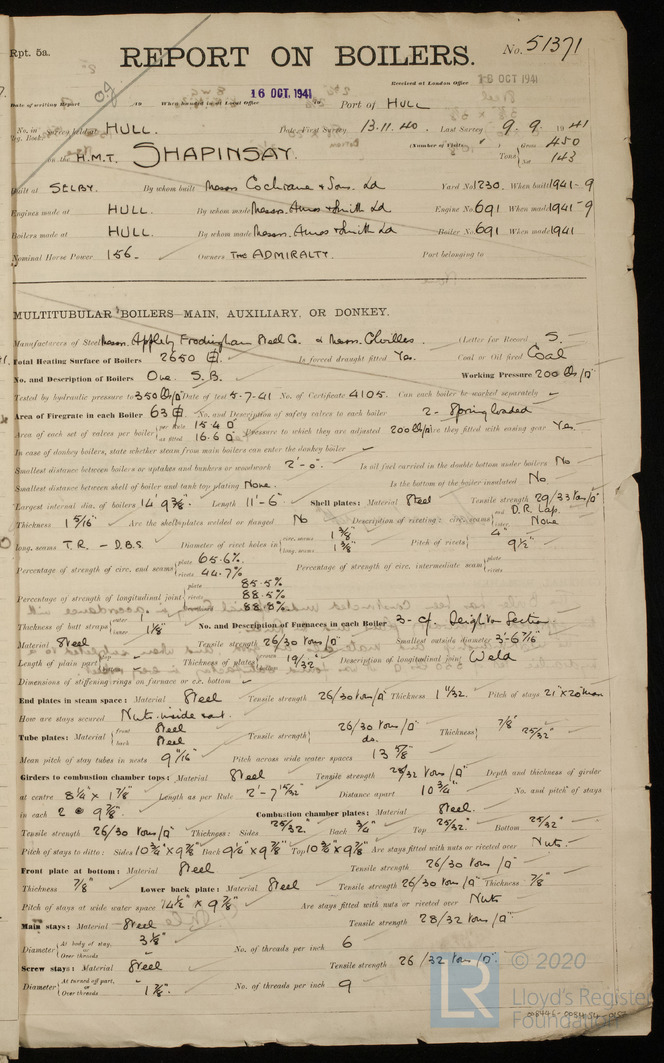 Rpt. 5a.
REPORT ON BOILERS.
No. 51371
Received at London Office 18 OCT 1941
16 OCT. 1941
Date of writing Report 19 When handed in at Local Office 19 Port of HULL
No. in Reg. Book. Survey held at HULL. Date, First Survey 13.11.40. Last Survey 9.9.1941
on the H.M.T. SHAPINSAY. (Number of Visits ) Tons Gross 450 Net 143
Built at SELBY. By whom built Messrs Cochrane & Sons. Ld Yard No. 1230. When built 1941-9
Engines made at HULL. By whom made Messrs. Amos & Smith Ld Engine No. 691 When made 1941-9
Boilers made at HULL. By whom made Messrs. Amos & Smith Ld Boiler No. 691 When made 1941
Nominal Horse Power 156. Owners THE ADMIRALTY. Port belonging to
MULTITUBULAR BOILERS—MAIN, AUXILIARY, OR DONKEY.
Manufacturers of Steel Messrs. Appleby Frodingham Steel Co. & Messrs. Colvilles. (Letter for Record S.
Total Heating Surface of Boilers 2650 Is forced draught fitted Yes. Coal or Oil fired Coal
No. and Description of Boilers One S.B. Working Pressure 200 lbs/□"
Tested by hydraulic pressure to 350 lbs/□" Date of test 5-7-41 No. of Certificate 4105. Can each boiler be worked separately
Area of Firegrate in each Boiler 63 No. and Description of safety valves to each boiler 2 - Spring loaded
Area of each set of valves per boiler per Rule 15.4 □" as fitted 16.6 □" Pressure to which they are adjusted 200 lbs/□" Are they fitted with easing gear Yes.
In case of donkey boilers, state whether steam from main boilers can enter the donkey boiler
Smallest distance between boilers or uptakes and bunkers or woodwork 2'-0". Is oil fuel carried in the double bottom under boilers No
Smallest distance between shell of boiler and tank top plating None. Is the bottom of the boiler insulated No
Largest internal dia. of boilers 14' 9 3/8". Length 11'-6" Shell plates: Material Steel Tensile strength 29/33 tons/□"
Thickness 1 5/16" Are the shell plates welded or flanged No Description of riveting: circ. seams end D.R. Lap. inter. None
long. seams T.R. - D.B.S. Diameter of rivet holes in circ. seams 1 3/8" long. seams 1 3/8" Pitch of rivets 4" 9 1/2"
Percentage of strength of circ. end seams plate 65.6% rivets 44.7% Percentage of strength of circ. intermediate seam plate rivets
Percentage of strength of longitudinal joint plate 85.5% rivets 88.5% combined 88.8%
Thickness of butt straps outer 1" inner 1 1/8" No. and Description of Furnaces in each Boiler 3 - Cf. Deighton Section
Material Steel Tensile strength 26/30 tons/□" Smallest outside diameter 3'-6 7/16"
Length of plain part top bottom Thickness of plates crown bottom 19/32" Description of longitudinal joint Weld
Dimensions of stiffening rings on furnace or c.c. bottom
End plates in steam space: Material Steel Tensile strength 26/30 tons/□" Thickness 1 11/32. Pitch of stays 21" x 20" mean
How are stays secured Nuts inside & out.
Tube plates: Material front Steel back Steel Tensile strength 26/30 tons/□" do. Thickness 7/8" 25/32"
Mean pitch of stay tubes in nests 9 11/16" Pitch across wide water spaces 13 5/8"
Girders to combustion chamber tops: Material Steel Tensile strength 28/32 tons/□" Depth and thickness of girder
at centre 8 1/4" x 1 7/8" Length as per Rule 2'-7 15/32" Distance apart 10 3/4" No. and pitch of stays
in each 2 @ 9 7/8". Combustion chamber plates: Material Steel.
Tensile strength 26/30 tons/□" Thickness: Sides 25/32" Back 3/4" Top 25/32" Bottom 25/32"
Pitch of stays to ditto: Sides 10 3/4" x 9 7/8" Back 9 1/2" x 9 7/8" Top 10 3/4" x 9 7/8" Are stays fitted with nuts or riveted over Nuts.
Front plate at bottom: Material Steel Tensile strength 26/30 tons/□"
Thickness 7/8" Lower back plate: Material Steel Tensile strength 26/30 tons/□" Thickness 7/8"
Pitch of stays at wide water space 14 1/2" x 9 7/8" Are stays fitted with nuts or riveted over Nuts
Main stays: Material Steel Tensile strength 28/32 tons/□"
Diameter At body of stay, or Over threads 3 1/8" No. of threads per inch 6
Screw stays: Material Steel Tensile strength 26/32 tons/□".
Diameter At turned off part, or Over threads 1 7/8". No. of threads per inch 9
LR
© 2020
Lloyd's Register
Foundation